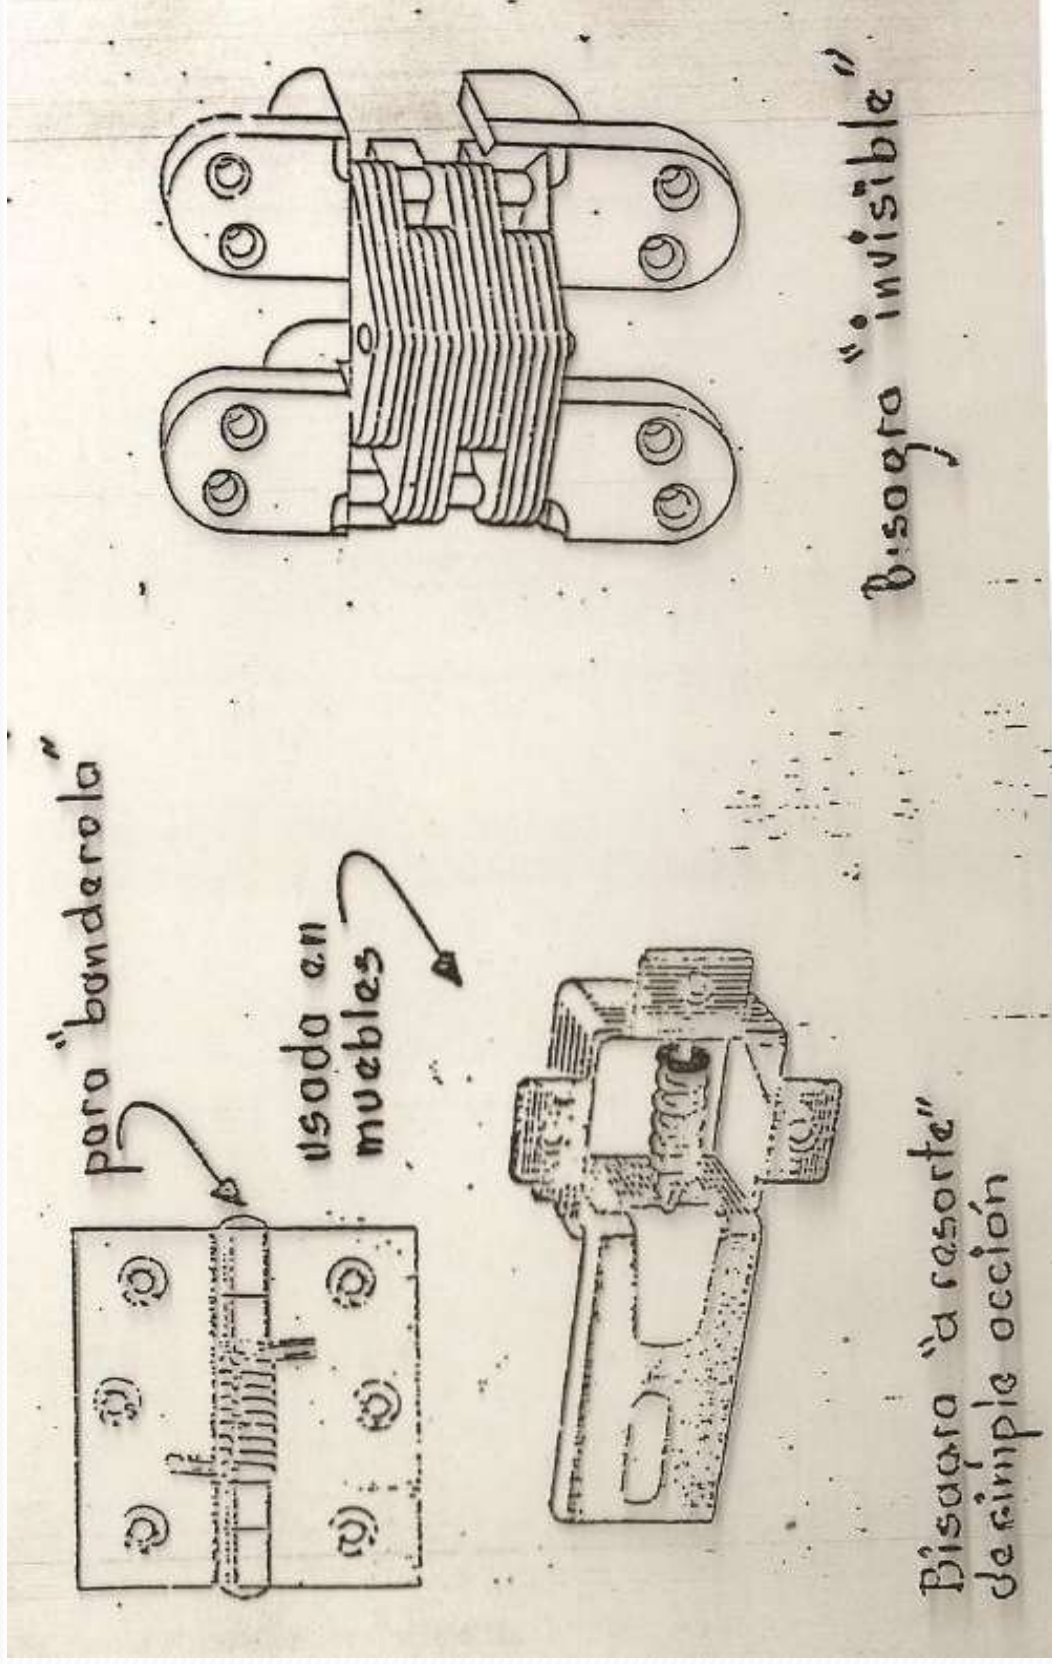 para "banderola"
usado en
muebles
Bisagra "a resorte"
de simple acción
Bisagra "invisible"